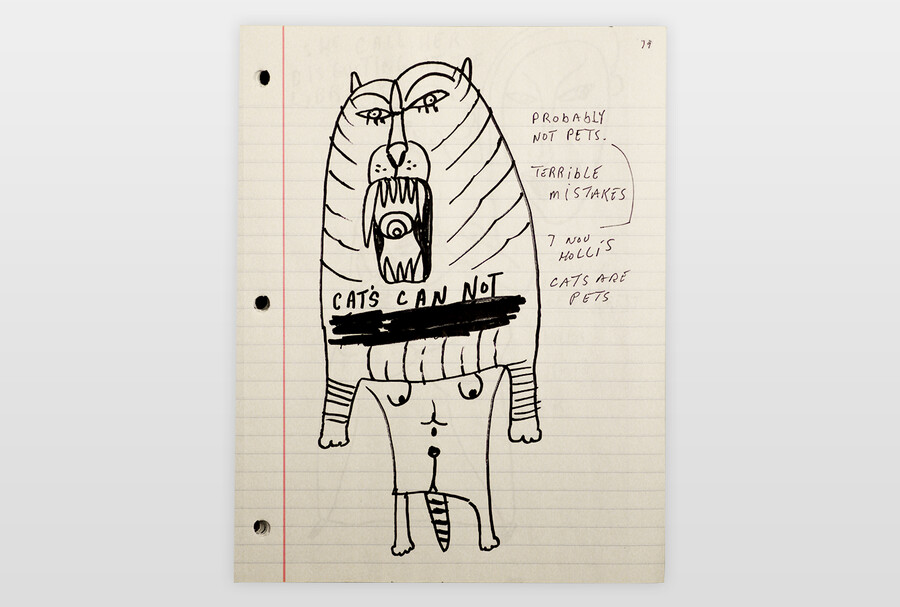 79
PROBABLY
NOT PETS.
TERRIBLE
MISTAKES
HOLLI'S
CATS ARE
PETS
CAT'S CAN NOT